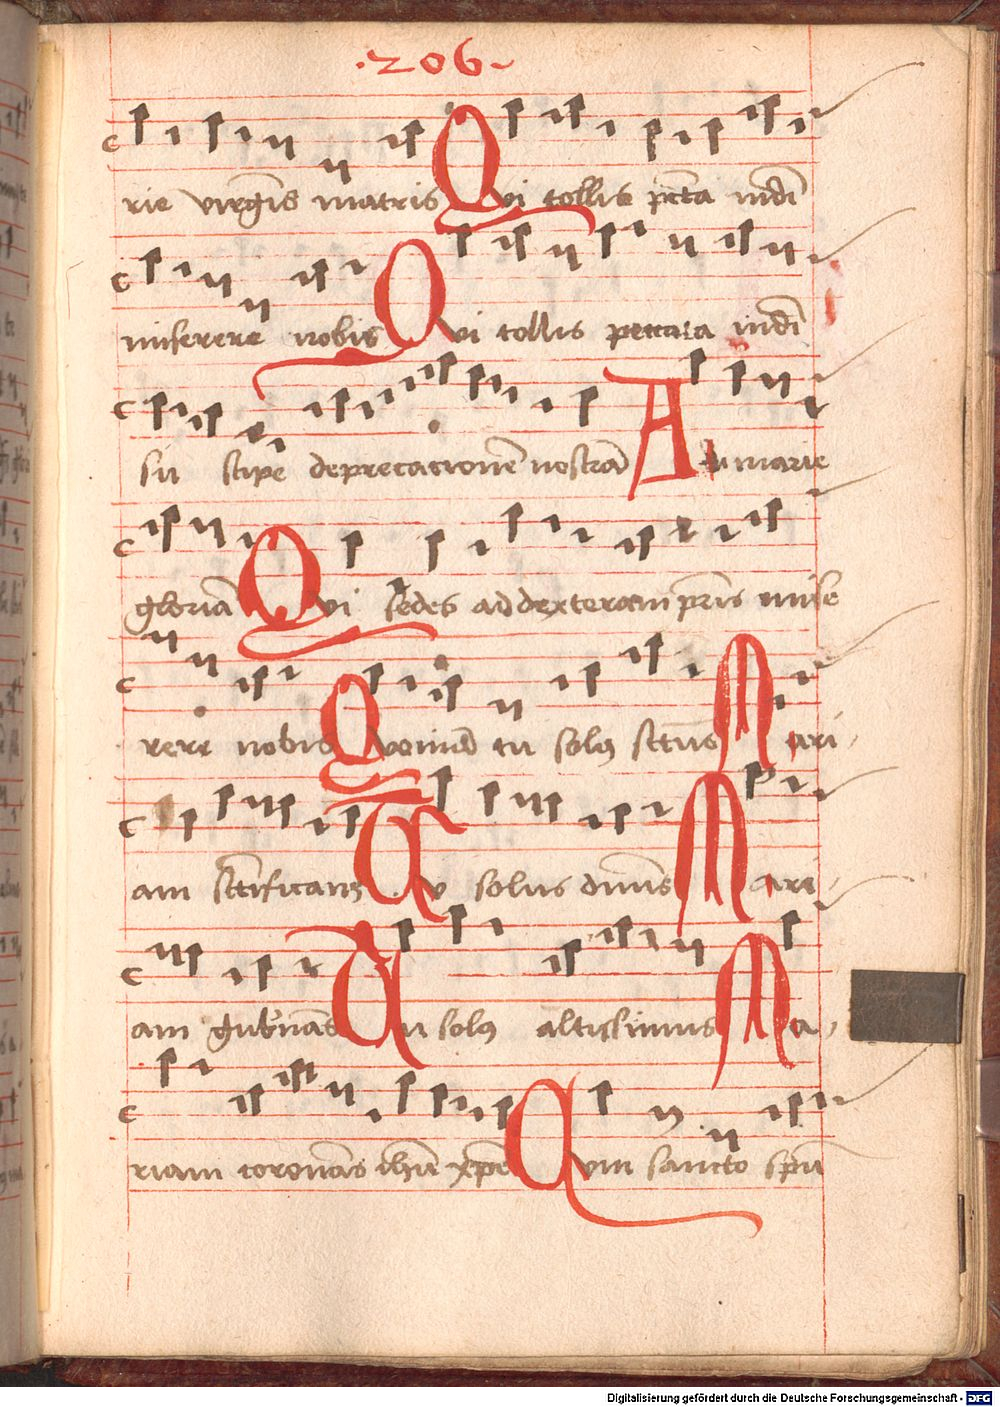 ·206~
rie virgīs matris Qui tollis pctā mūdi
miserere nobis Qui tollis peccata mūdi
suscipe deprecationē nostrā Ad marie
gloriā Qui sedes ad dexteram pr̄is mise
rere nobis Quoniā tu solus sctūs Mari
am sctīficans Tu solus dn̄us Mari
am gub'nās Tu solus altissimus Ma
riam coronās ihū xpē Cum sancto spū
Digitalisierung gefördert durch die Deutsche Forschungsgemeinschaft - DFG